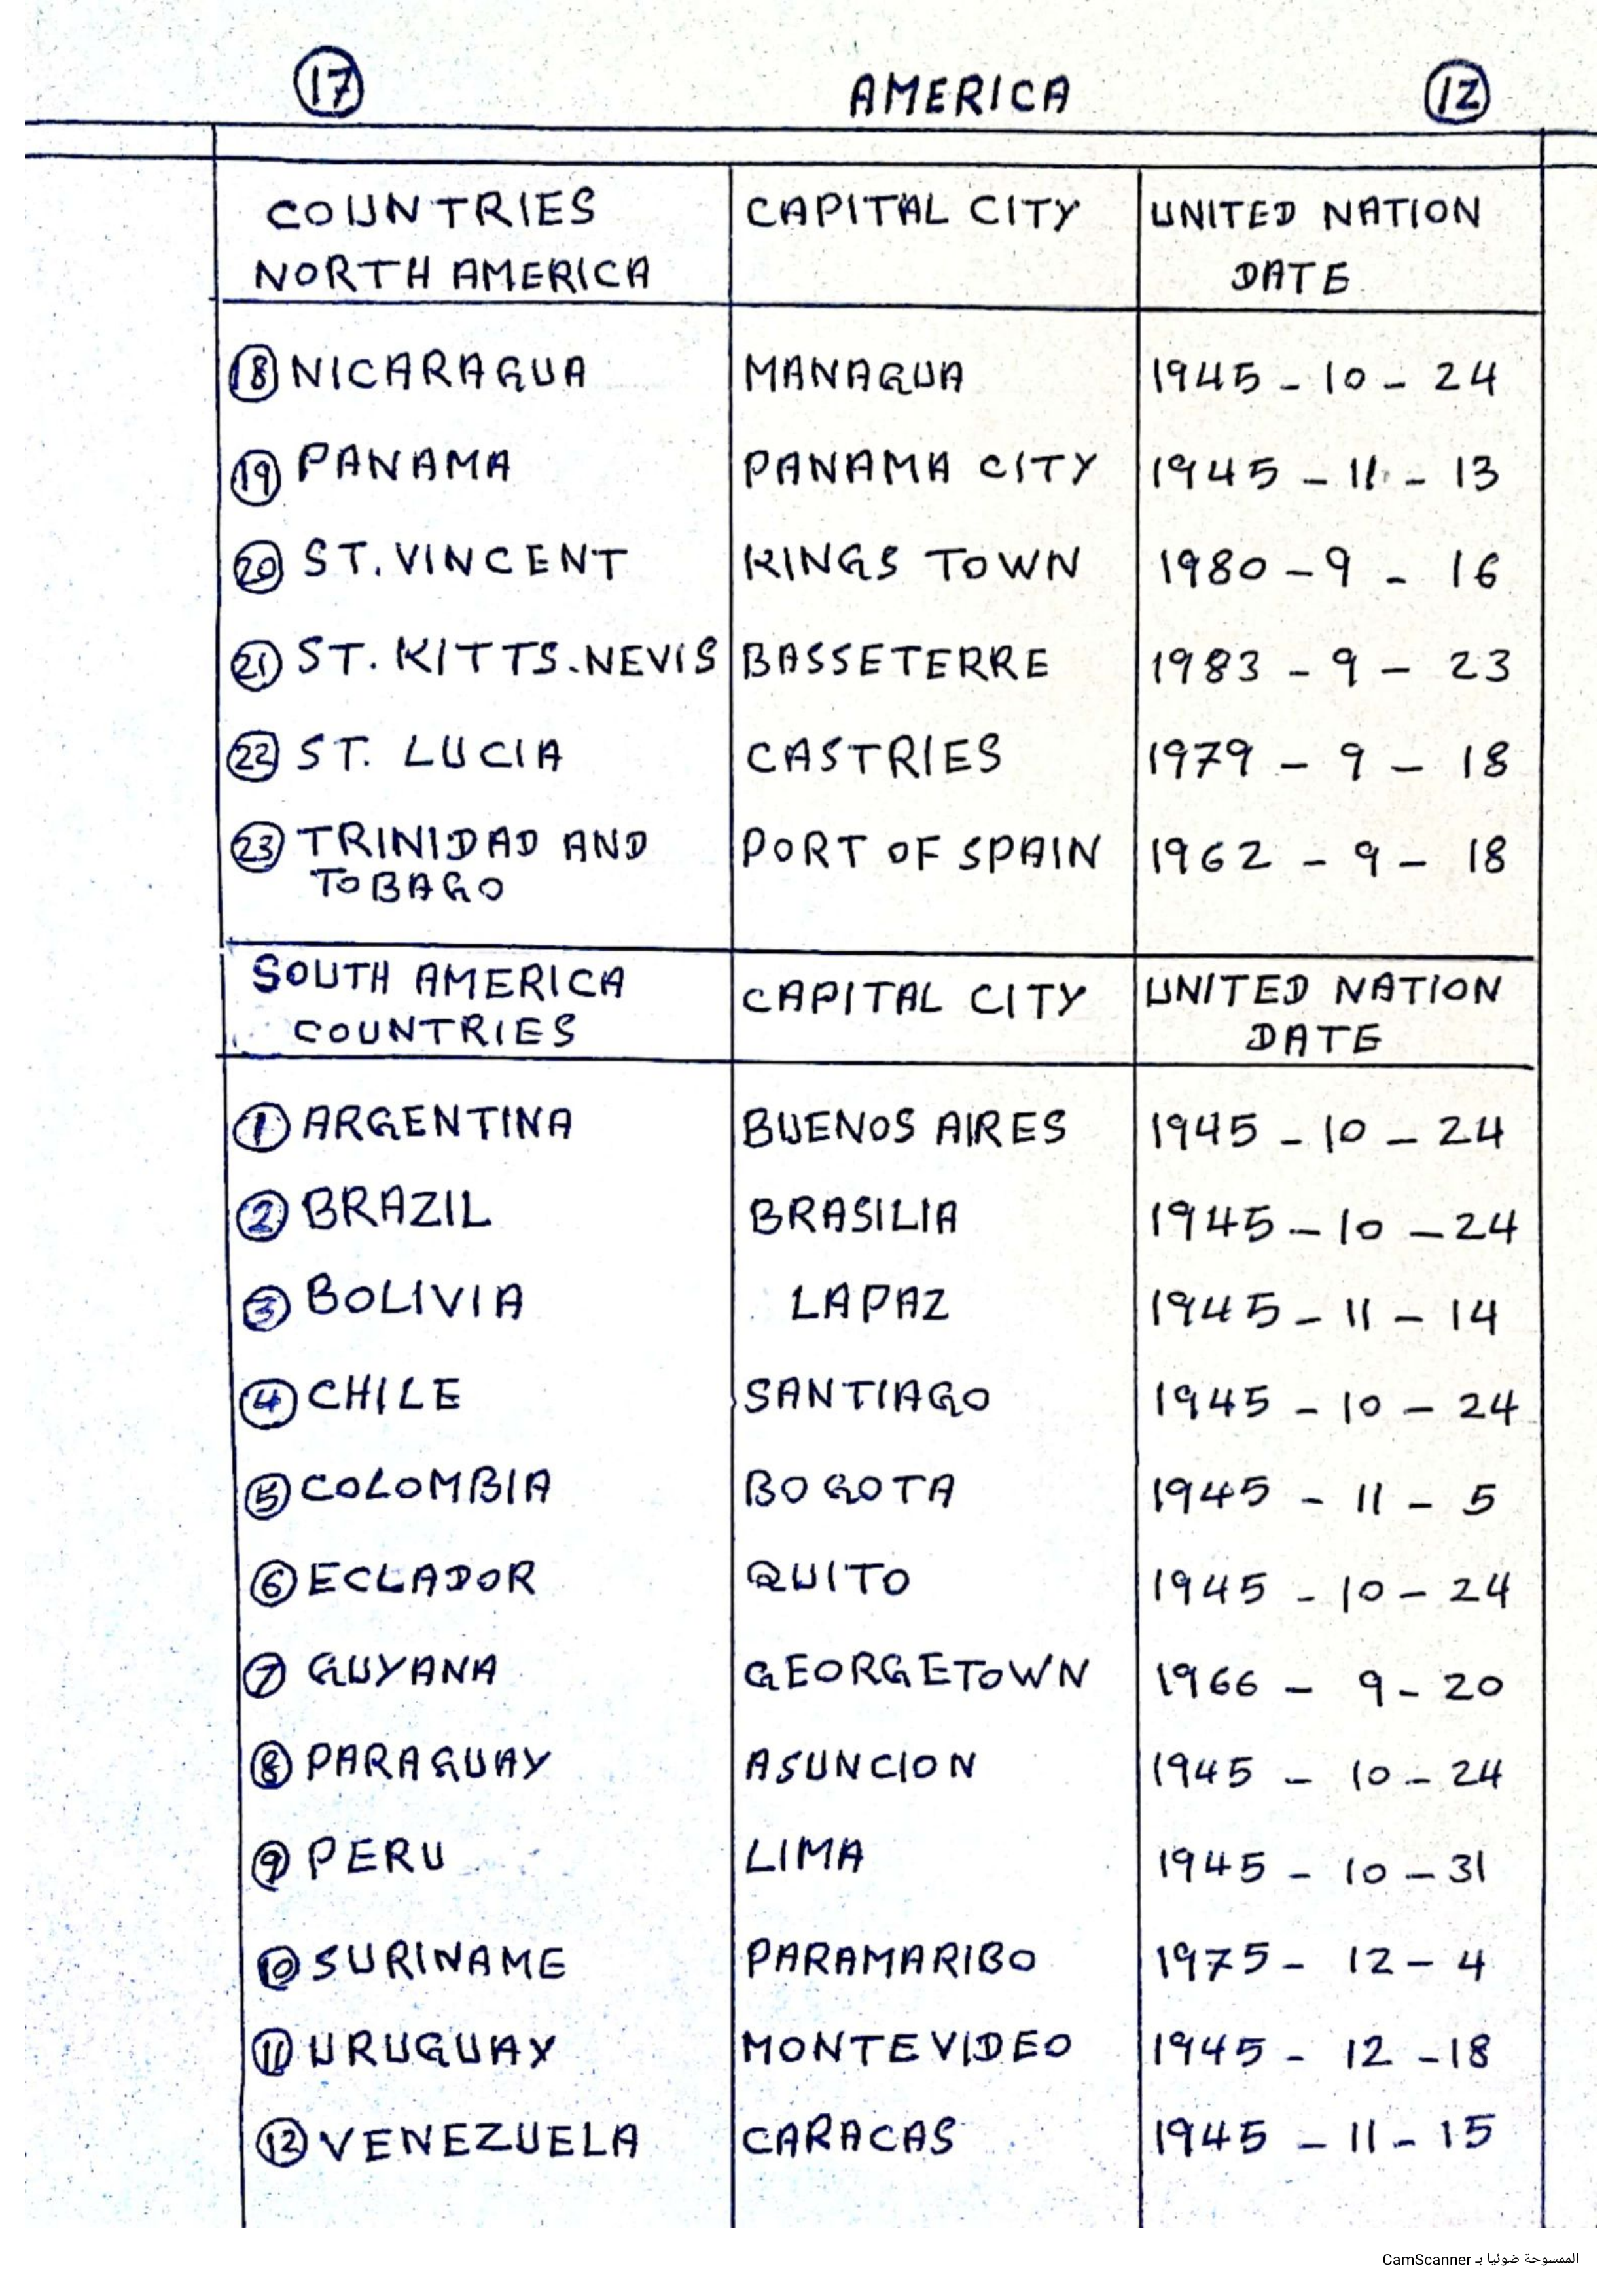 17 AMERICA 12
COUNTRIES NORTH AMERICA CAPITAL CITY UNITED NATION DATE
18 NICARAGUA MANAGUA 1945 - 10 - 24
19 PANAMA PANAMA CITY 1945 - 11 - 13
20 ST. VINCENT KINGS TOWN 1980 - 9 - 16
21 ST. KITTS-NEVIS BASSETERRE 1983 - 9 - 23
22 ST. LUCIA CASTRIES 1979 - 9 - 18
23 TRINIDAD AND TOBAGO PORT OF SPAIN 1962 - 9 - 18
SOUTH AMERICA COUNTRIES CAPITAL CITY UNITED NATION DATE
1 ARGENTINA BUENOS AIRES 1945 - 10 - 24
2 BRAZIL BRASILIA 1945 - 10 - 24
3 BOLIVIA LAPAZ 1945 - 11 - 14
4 CHILE SANTIAGO 1945 - 10 - 24
5 COLOMBIA BOGOTA 1945 - 11 - 5
6 ECLADOR QUITO 1945 - 10 - 24
7 GUYANA GEORGETOWN 1966 - 9 - 20
8 PARAGUAY ASUNCION 1945 - 10 - 24
9 PERU LIMA 1945 - 10 - 31
10 SURINAME PARAMARIBO 1975 - 12 - 4
11 URUGUAY MONTEVIDEO 1945 - 12 - 18
12 VENEZUELA CARACAS 1945 - 11 - 15
الممسوحة ضوئيا بـ CamScanner